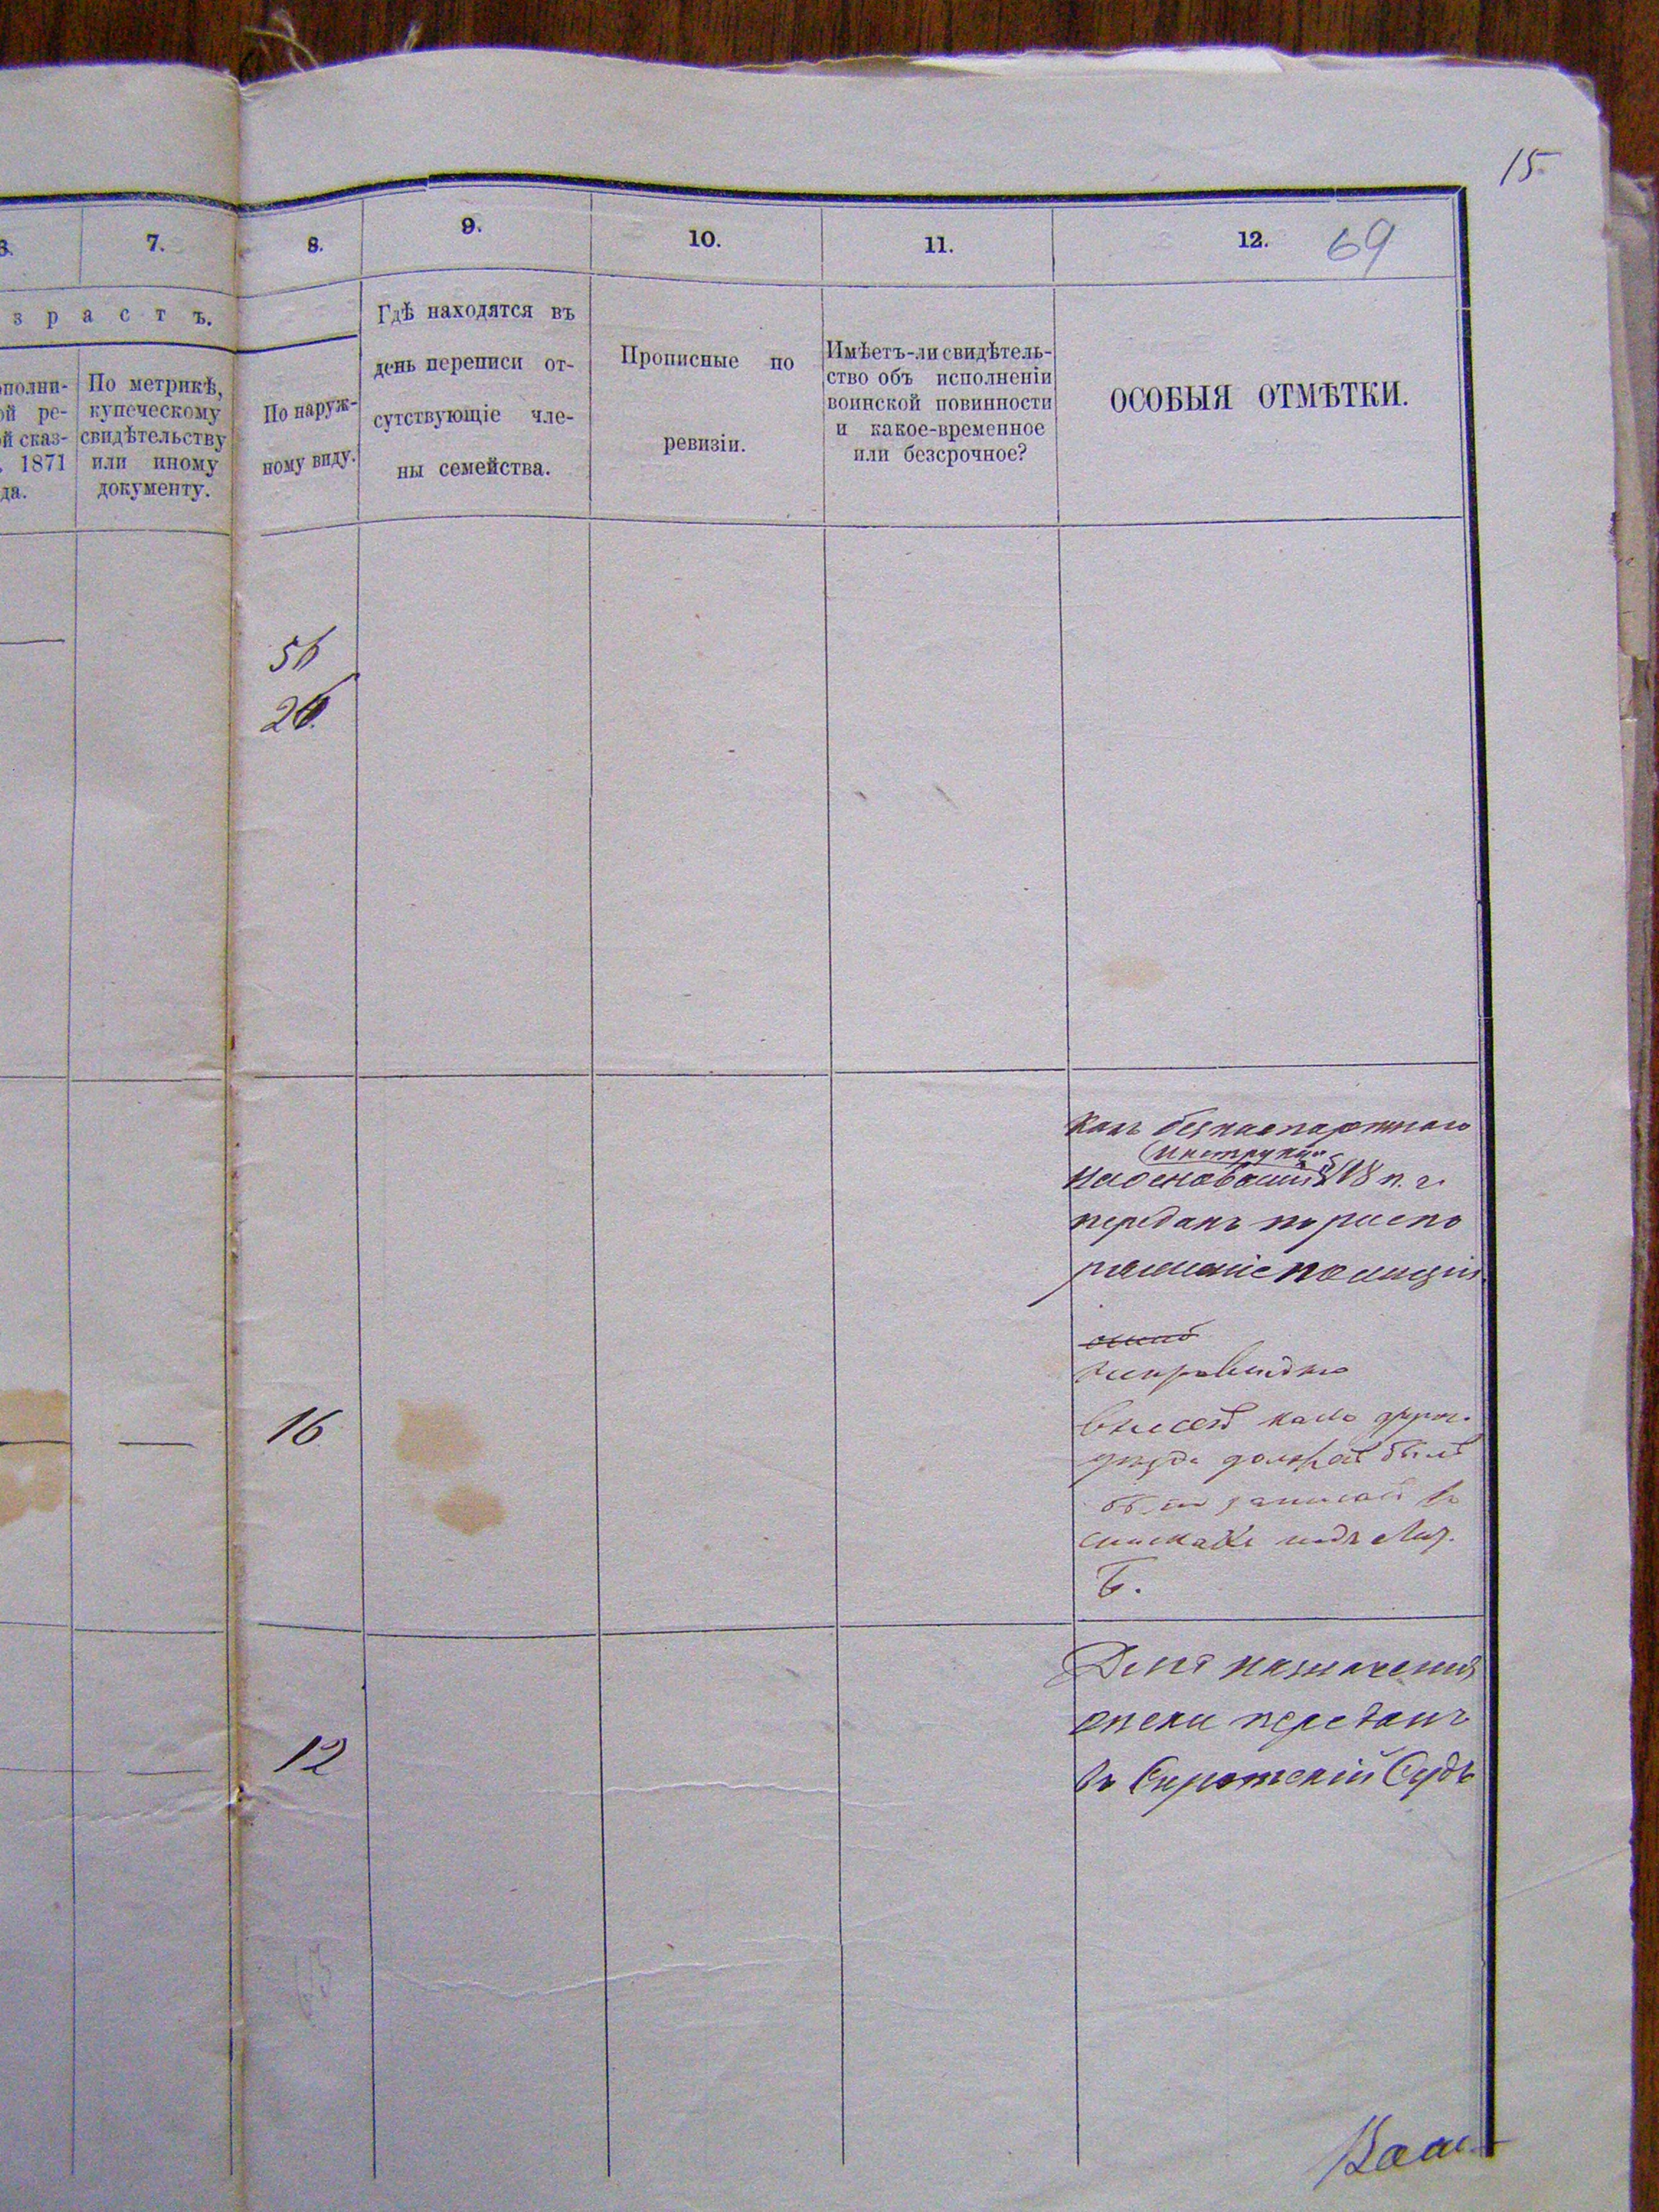 15
69
6.
7.
8.
9.
10.
11.
12.
з р а с т ъ.
ополни-
ой ре-
й сказ-
. 1871
да.
По метрикѣ,
купеческому
свидѣтельству
или иному
документу.
По наруж-
ному виду.
Гдѣ находятся въ
день переписи от-
сутствующіе чле-
ны семейства.
Прописные по
ревизіи.
Имѣетъ-ли свидѣтель-
ство объ исполненіи
воинской повинности
и какое-временное
или безсрочное?
ОСОБЫЯ ОТМѢТКИ.
56
26.
Какъ безпаспортнаго
на основаніи 18 п. г.
переданъ въ распо
ряженіе полиціи.
16
неправильно
долженъ былъ
записанъ въ
спискахъ подъ Лит.
Б.
12
Для назначенія
опеки переданъ
въ Сиротскій Судъ